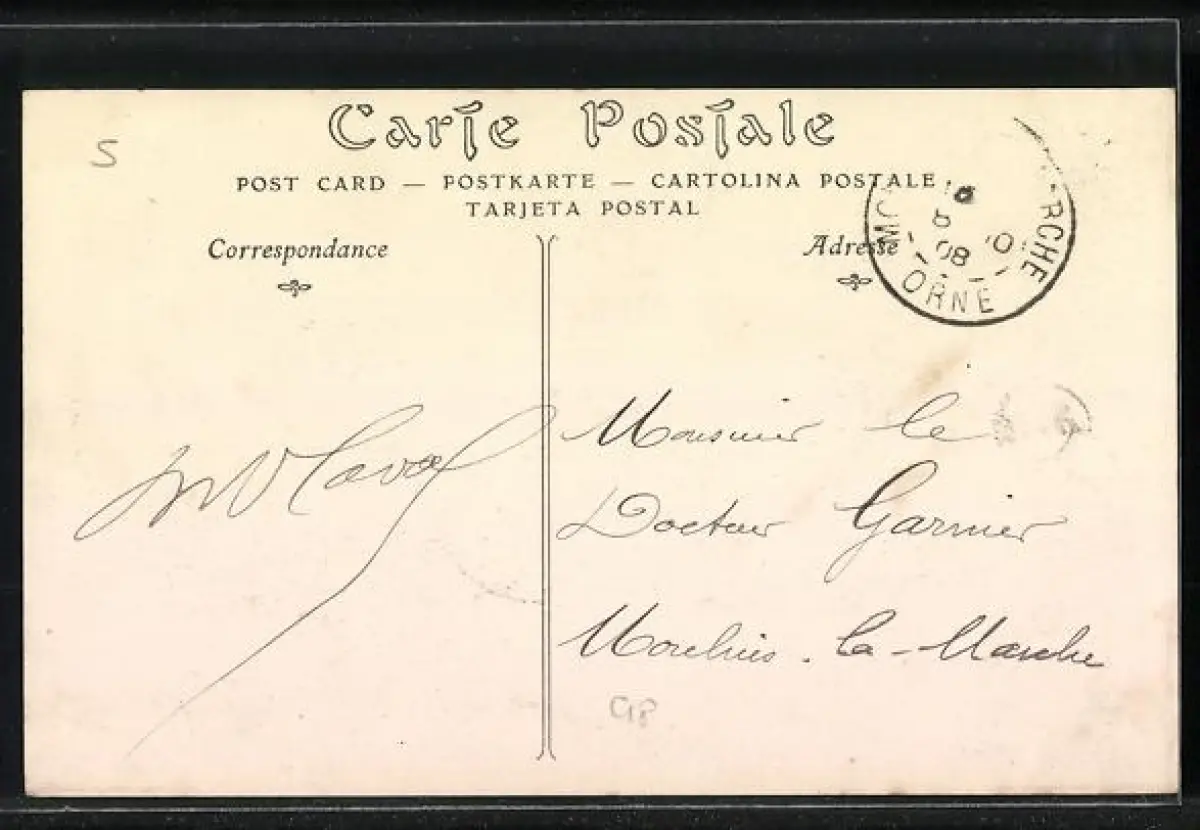 Carte Postale
POST CARD — POSTKARTE — CARTOLINA POSTALE
TARJETA POSTAL
5
Correspondance
Adresse
RCHE
08
ORNE
Laval
Monsieur le
Docteur Garnier
Moulins-la-Marche